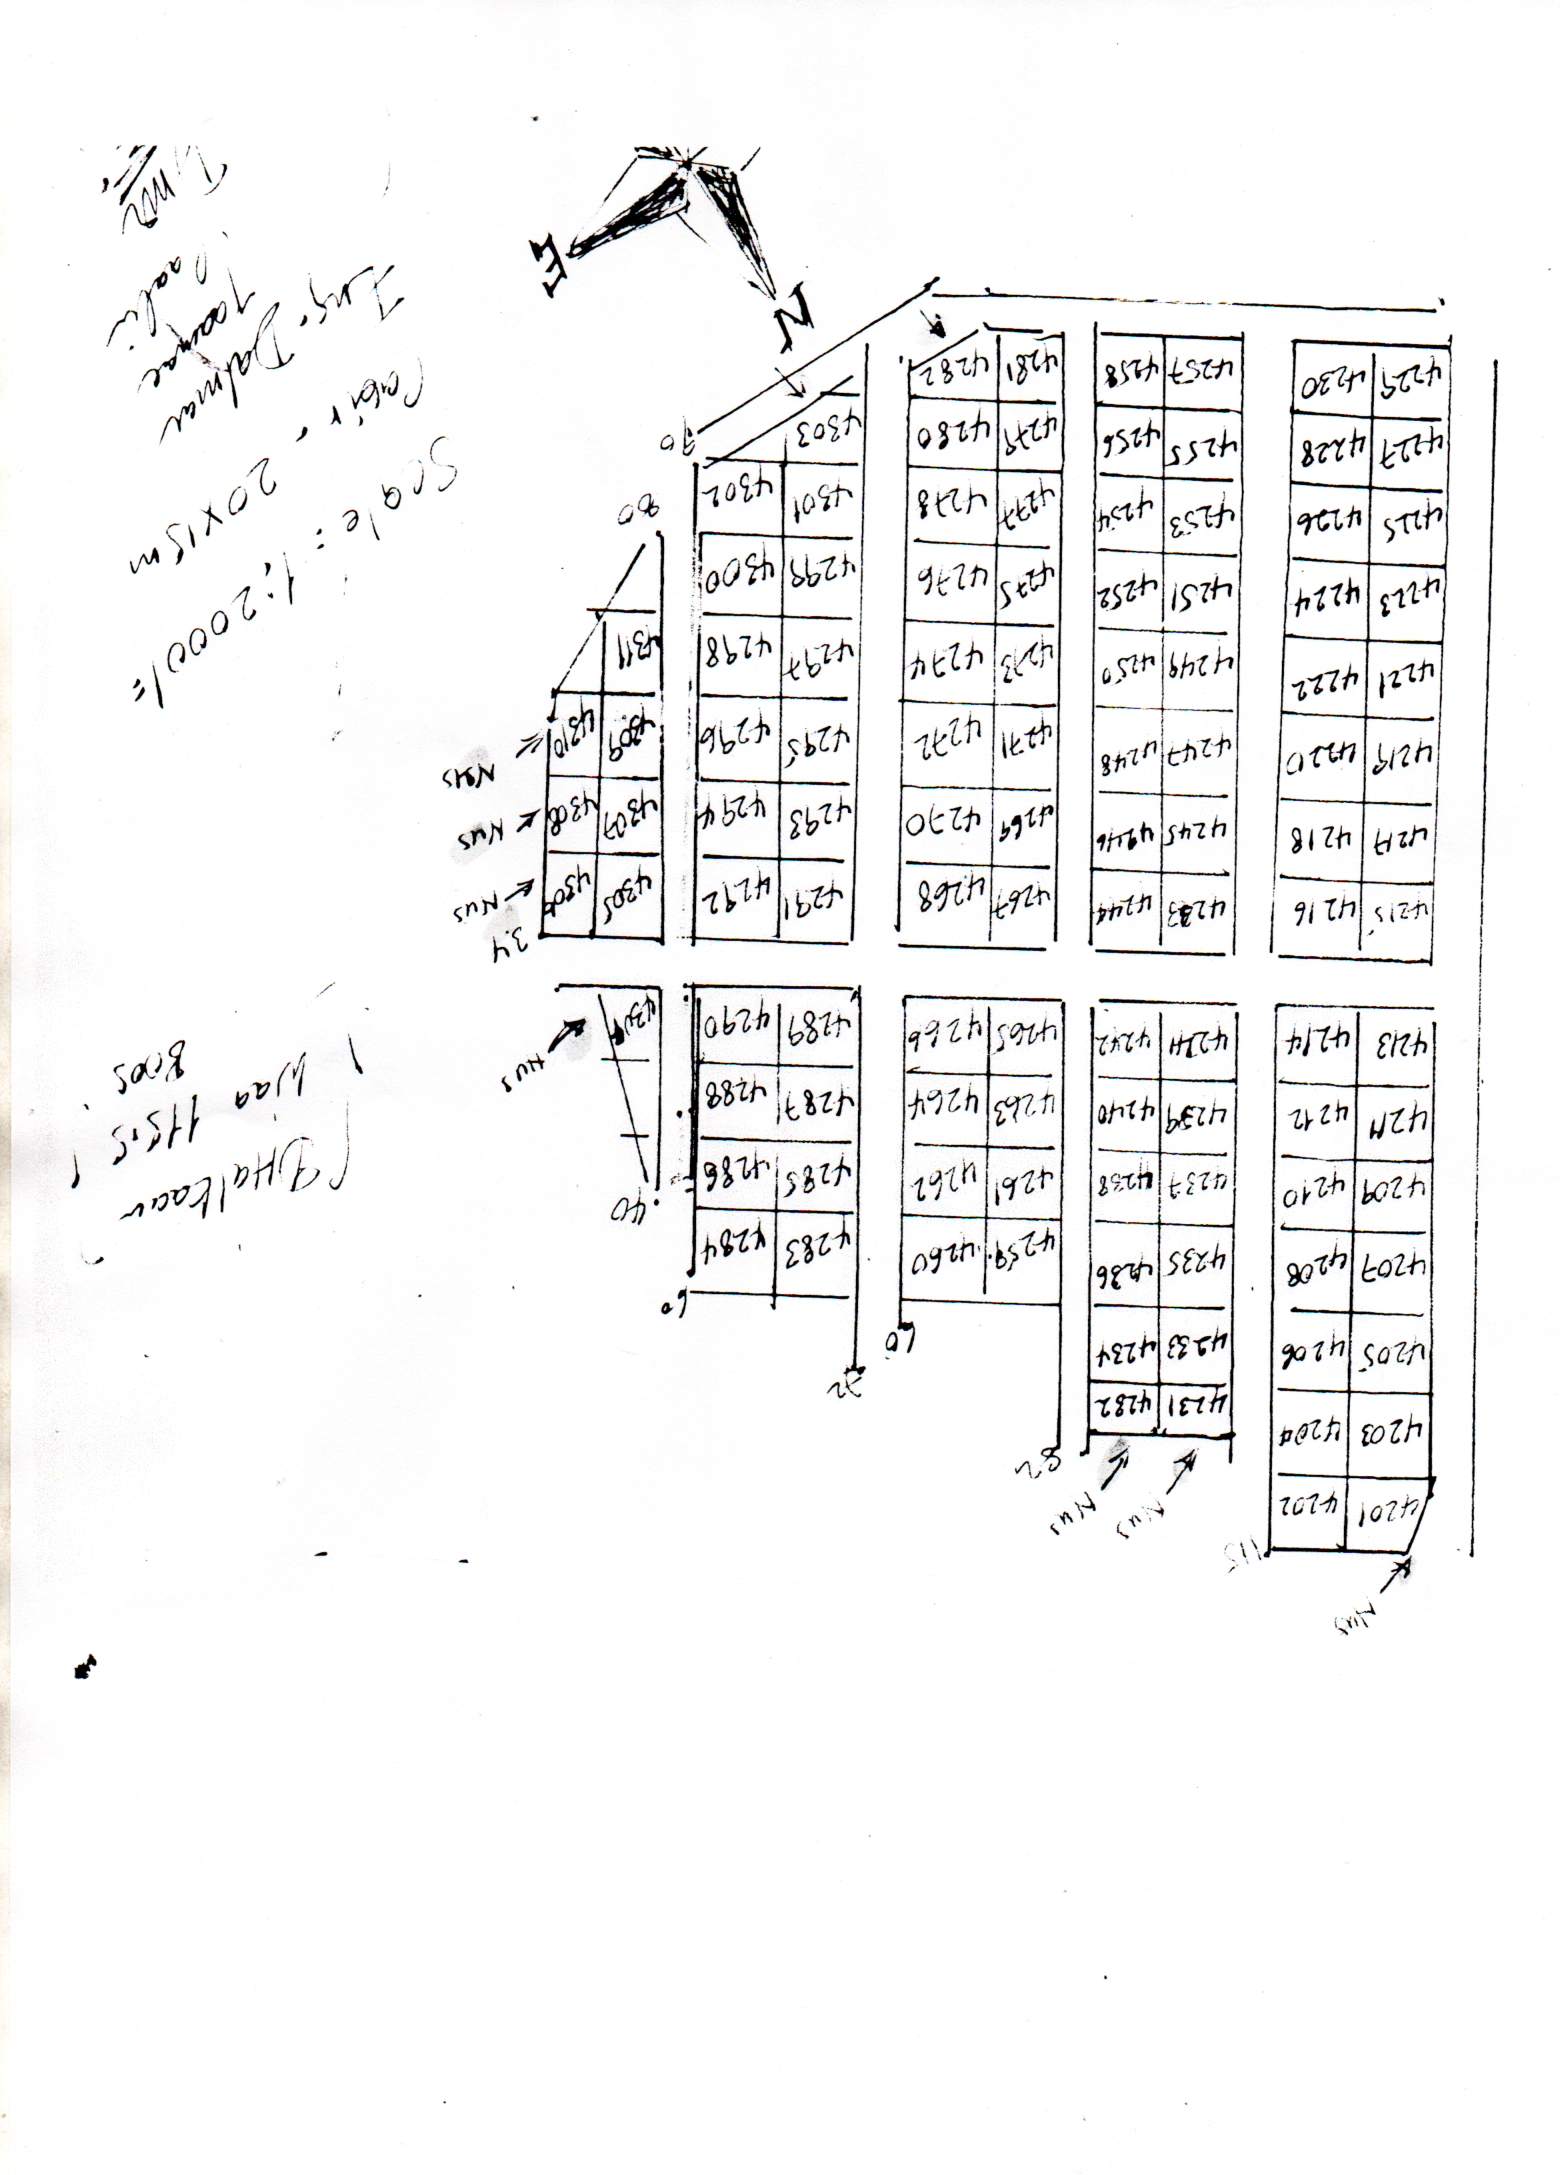 Nus
115
4201 4202
4203 4204
4205 4206
4207 4208
4209 4210
4211 4212
4213 4214
4215 4216
4217 4218
4219 4220
4221 4222
4223 4224
4225 4226
4227 4228
4229 4230
Nus Nus
4231 4232
4233 4234
4235 4236
4237 4238
4239 4240
4241 4242
4243 4244
4245 4246
4247 4248
4249 4250
4251 4252
4253 4254
4255 4256
4257 4258
82
60
4259 4260
4261 4262
4263 4264
4265 4266
4267 4268
4269 4270
4271 4272
4273 4274
4275 4276
4277 4278
4279 4280
4281 4282
72
60
4283 4284
4285 4286
4287 4288
4289 4290
4291 4292
4293 4294
4295 4296
4297 4298
4299 4300
4301 4302
4303
70
40
4304
Nus
34
4305 4306
Nus
4307 4308
Nus
4309 4310
Nus
4311
80
N
E
DHalkaan
waa 115.5
Boos
Scale = 1:2000/=
Cabir. 20x15m
Eng. Dalmar